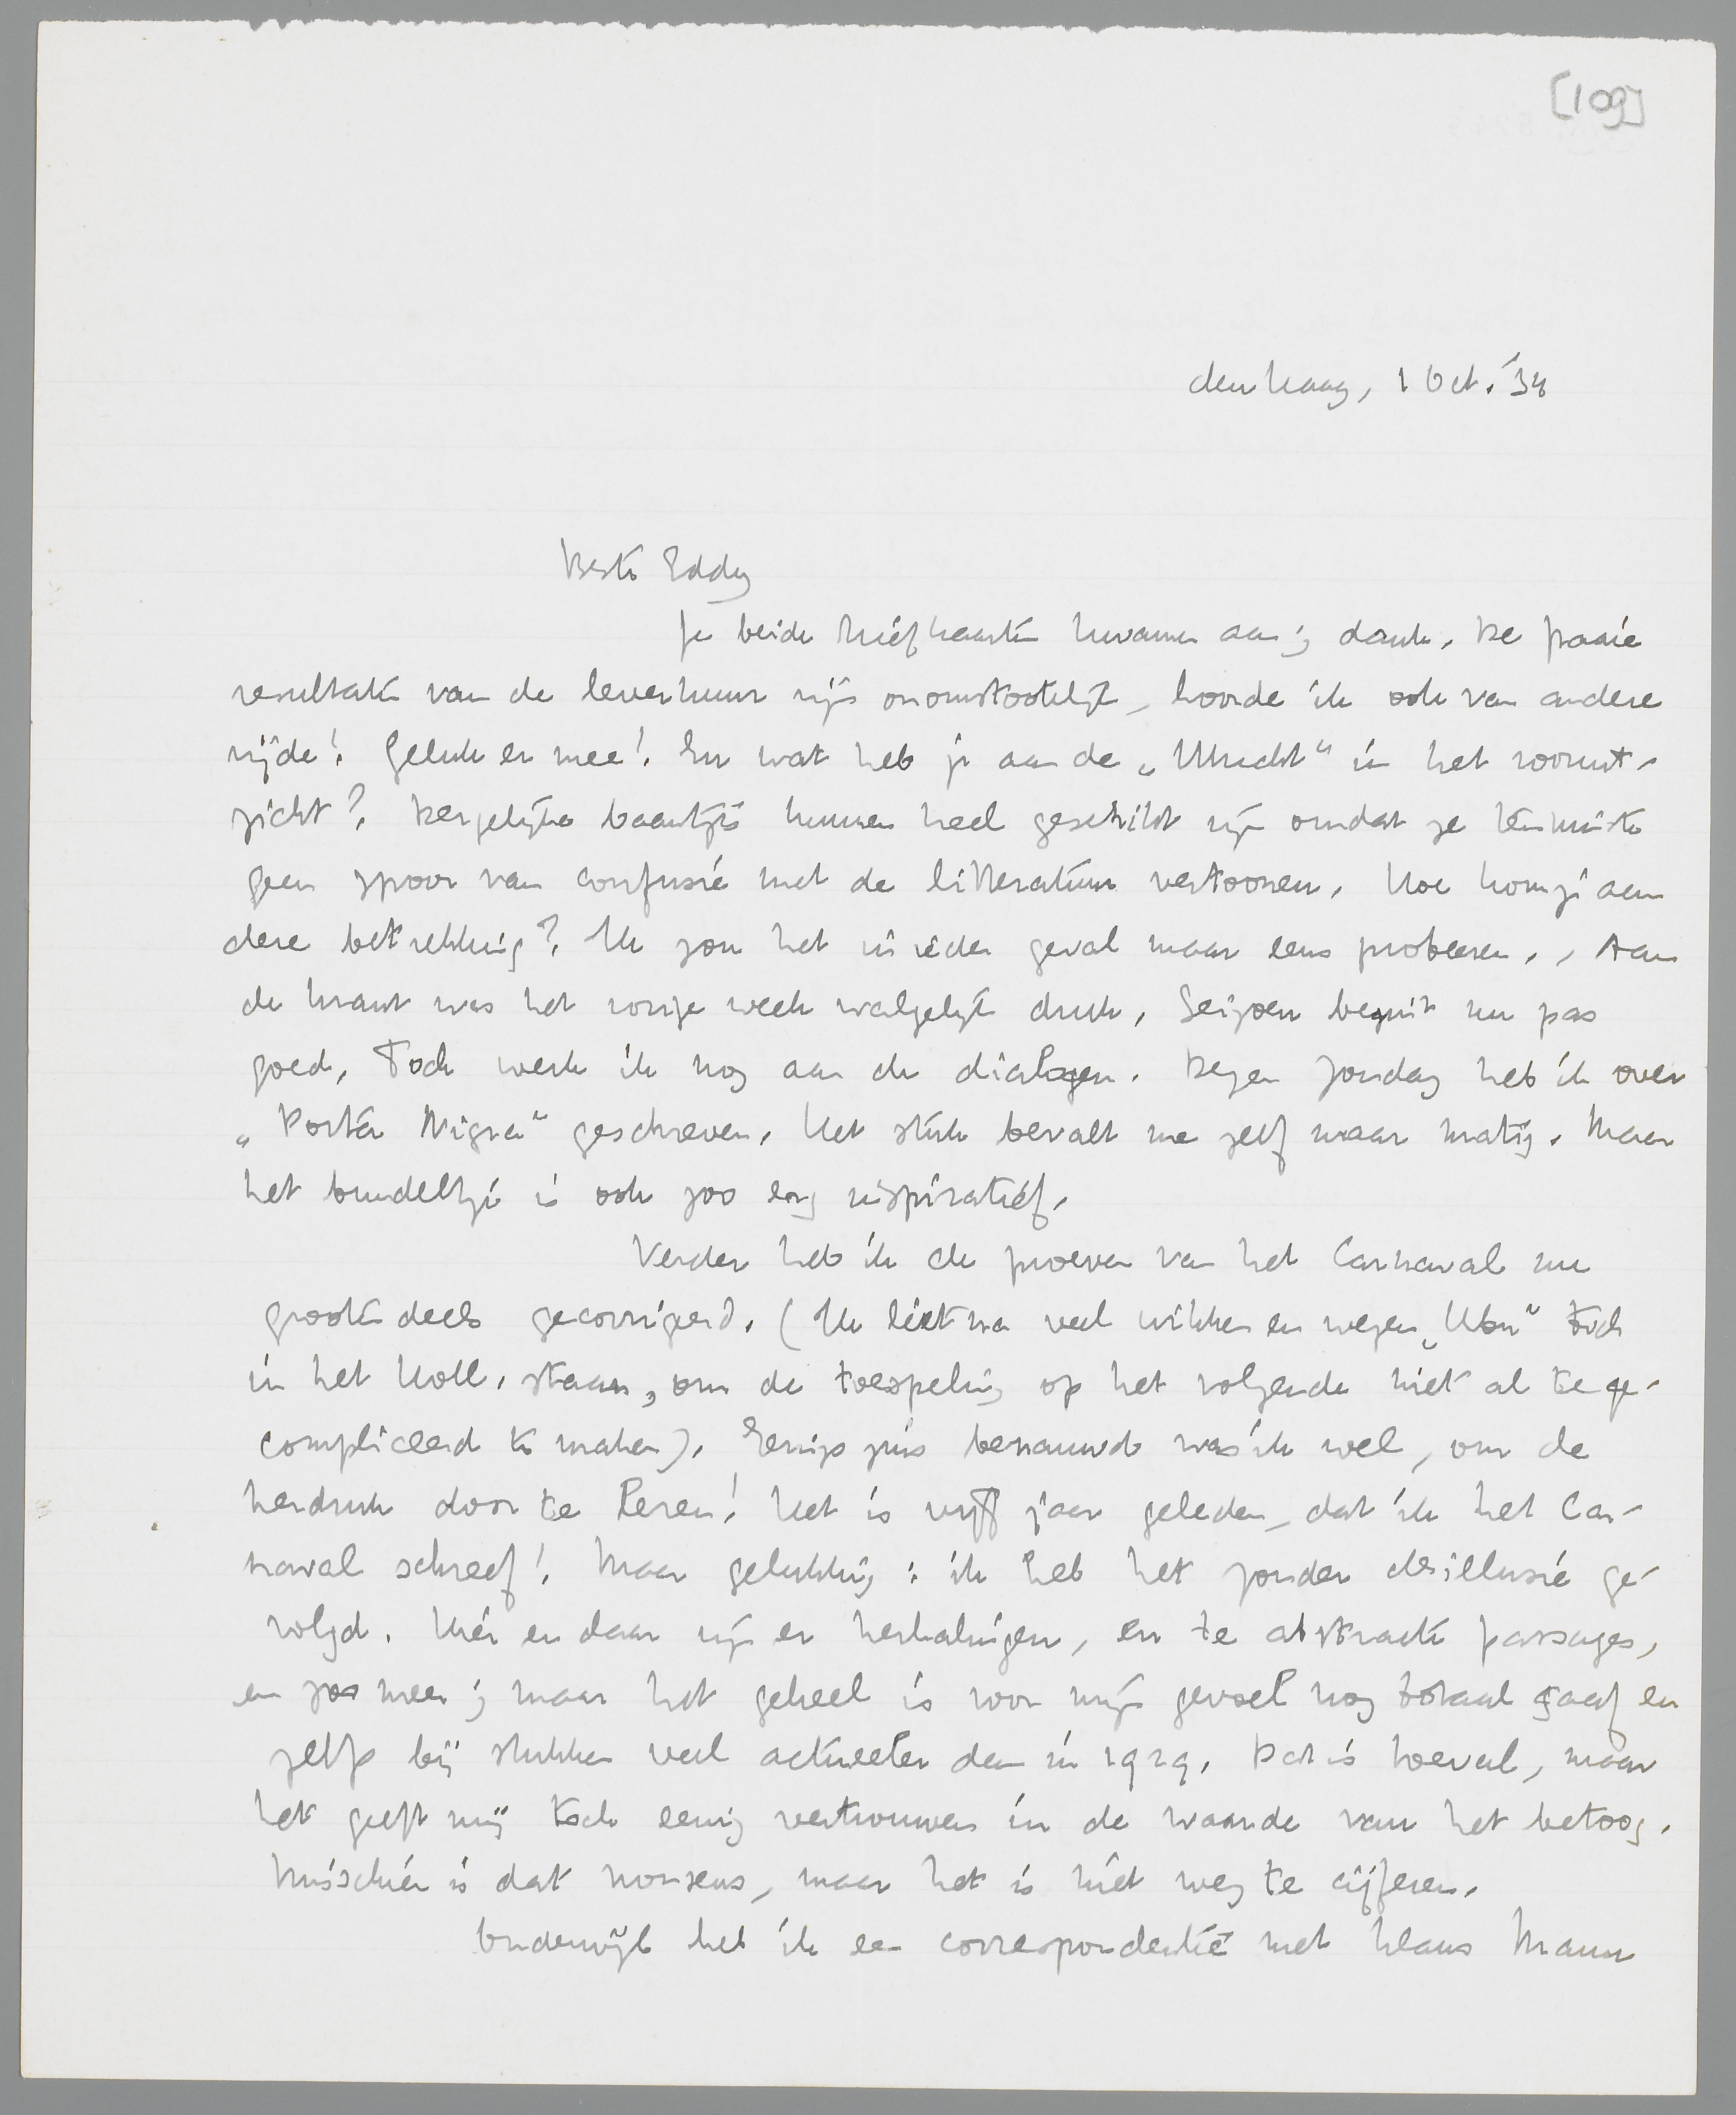 [109]
den Haag, 1 Oct. '34
Beste Eddy
Je beide briefkaarten kwamen aan; dank. De fraaie
resultaten van de leverkuur zijn onomstootelijk, hoorde ik ook van andere
zijde! Geluk er mee! En wat heb je aan de „Utrecht" in het vooruit-
zicht? Dergelijke baantjes kunnen heel geschikt zijn omdat ze tenminste
geen spoor van confusie met de litteratuur vertoonen. Hoe kom je aan
deze betrekking? Ik zou het in ieder geval maar eens probeeren. , Aan
de krant was het vorige week walgelijk druk, Seizoen begint nu pas
goed. Toch werk ik nog aan de dialogen. Tegen Zondag heb ik over
„Porta Nigra" geschreven. Het stuk bevalt me zelf maar matig. Maar
het bundeltje is ook zoo erg inspiratief.
Verder heb ik de proeven van het Carnaval nu
grootendeels gecorrigeerd. (Ik liet na veel wikken en wegen „Ubu" toch
in het Holl. staan, om de toespeling op het volgende niet al te ge-
compliceerd te maken). Eenigszins benauwd was ik wel, om de
herdruk door te lezen! Het is vijf jaar geleden, dat ik het Car-
naval schreef! Maar gelukkig: ik heb het zonder desillusie ge-
volgd. Hier en daar zijn er herhalingen, en te abstracte passages,
en zoo meer; maar het geheel is voor mijn gevoel nog totaal gaaf en
zelfs bij stukken veel actueeler dan in 1929. Dat is toeval, maar
het geeft mij toch eenig vertrouwen in de waarde van het betoog.
Misschien is dat nonsens, maar het is niet weg te cijferen.
Onderwijl heb ik een correspondentie met Klaus Mann